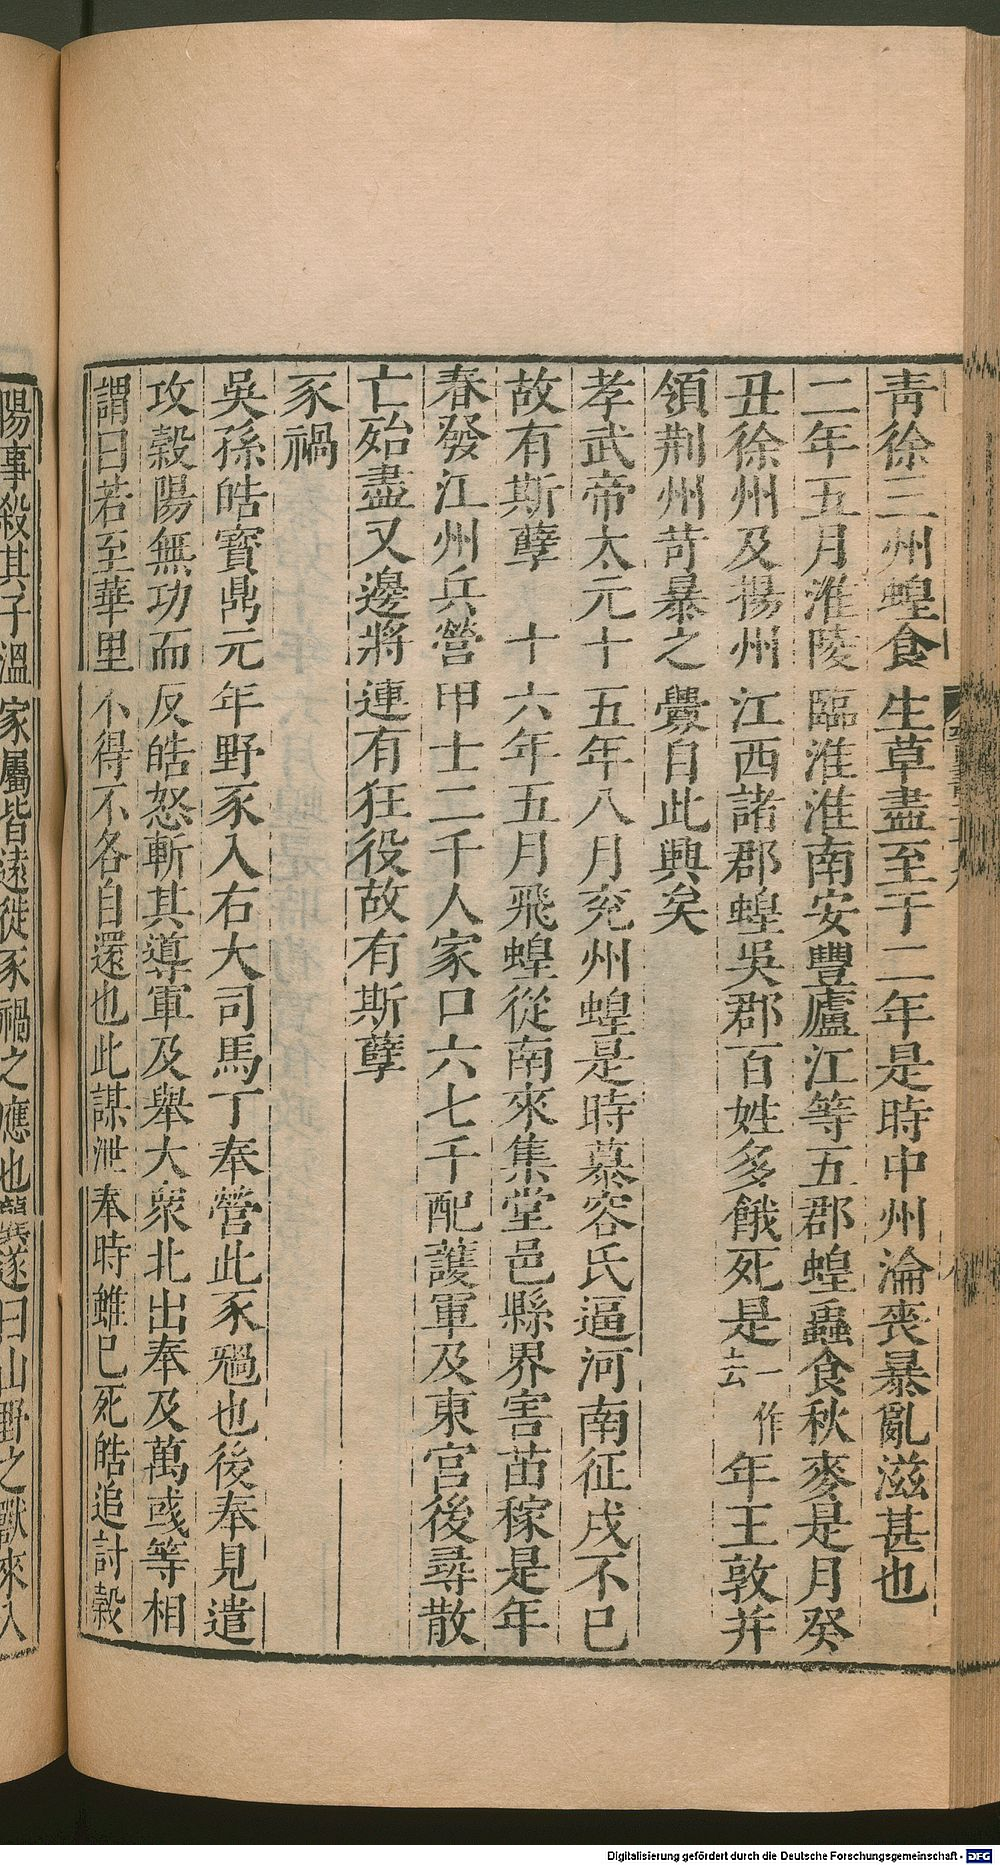 青徐三州蝗食生草盡至于二年是時中州淪喪暴亂滋甚也
二年五月淮陵臨淮淮南安豐廬江等五郡蝗蟲食秋麥是月癸
丑徐州及揚州江西諸郡蝗吳郡百姓多餓死是一作去年王敦并
領荆州苛暴之釁自此興矣
孝武帝太元十五年八月兖州蝗是時慕容氏逼河南征戍不已
故有斯孽十六年五月飛蝗從南來集堂邑縣界害苗稼是年
春發江州兵營甲士二千人家口六七千配護軍及東宮後尋散
亡始盡又邊將連有狂役故有斯孽
豕禍
吳孫皓寶鼎元年野豕入右大司馬丁奉營此豕禍也後奉見遣
攻穀陽無功而反皓怒斬其導軍及舉大衆北出奉及萬彧等相
謂曰若至華里不得不各自還也此謀泄奉時雖已死皓追討穀
陽事殺其子溫家屬皆遠徙豕禍之應也龔遂曰山野之獸來入
Digitalisierung gefördert durch die Deutsche Forschungsgemeinschaft - DFG